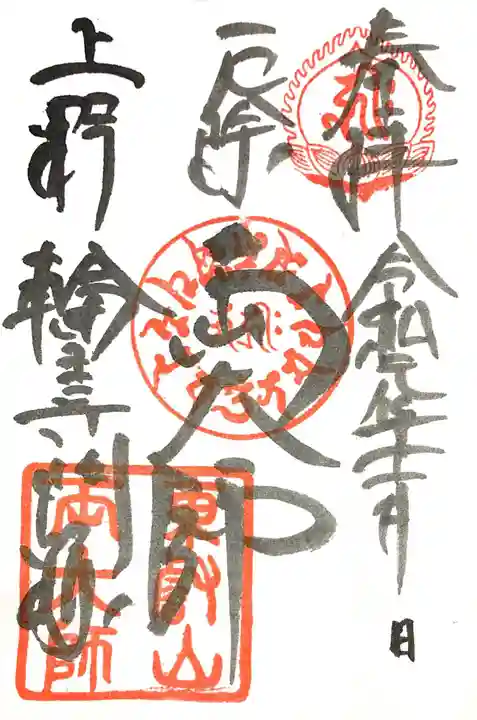 奉拝
令和元年
日
厄除
両大師
上野
輪王寺門跡
東叡山
両大師